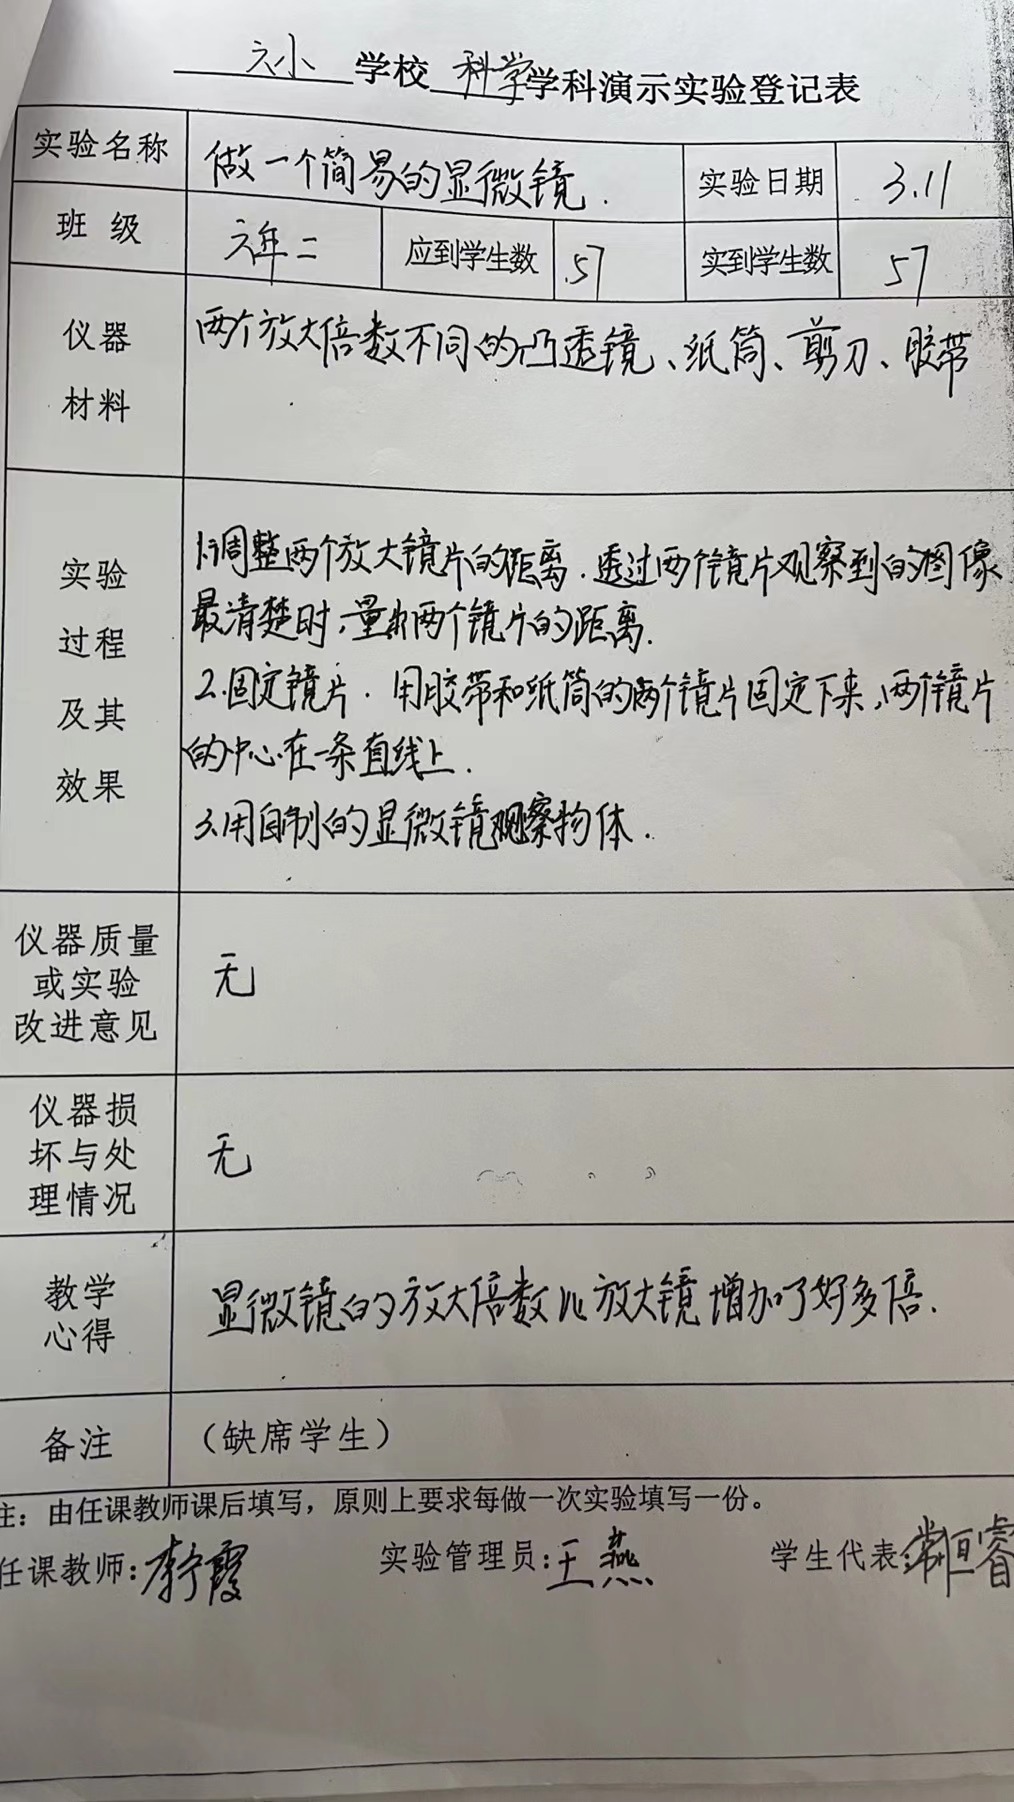 六小 学校 科学 学科演示实验登记表
实验名称 做一个简易的显微镜. 实验日期 3.11
班 级 六年二 应到学生数 57 实到学生数 57
仪器 两个放大倍数不同的凸透镜、纸筒、剪刀、胶带
材料
实验 1.调整两个放大镜片的距离.透过两个镜片观察到的图像
过程 最清楚时,量出两个镜片的距离.
及其 2.固定镜片.用胶带和纸筒的两个镜片固定下来,两个镜片
效果 的中心在一条直线上.
3.用自制的显微镜观察物体.
仪器质量
或实验 无
改进意见
仪器损
坏与处 无
理情况
教学 显微镜的放大倍数比放大镜增加了好多倍.
心得
备注 (缺席学生)
注:由任课教师课后填写,原则上要求每做一次实验填写一份。
任课教师:李霞 实验管理员:王燕 学生代表:睿